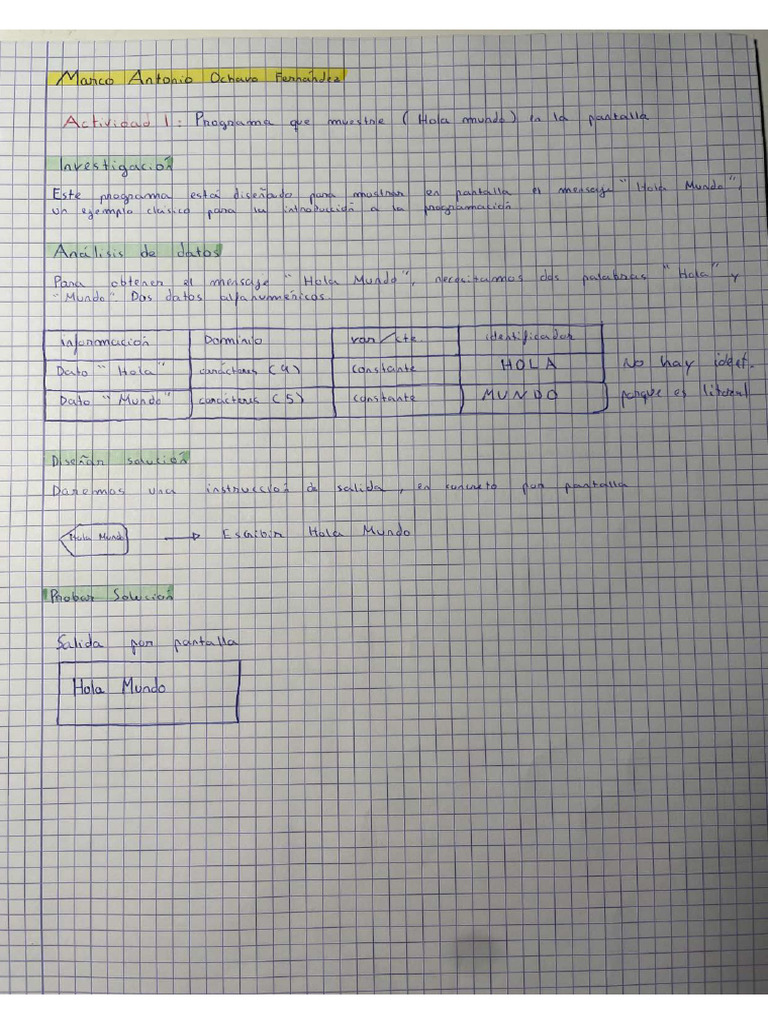 Marco Antonio Ochavo Fernández
Actividad 1: Programa que muestre (Hola mundo) en la pantalla
Investigación
Este programa está diseñado para mostrar en pantalla el mensaje "Hola Mundo",
un ejemplo clásico para la introducción a la programación
Análisis de datos
Para obtener el mensaje "Hola Mundo", necesitamos dos palabras "Hola" y
"Mundo". Dos datos alfanuméricos.
información Dominio var/cte. identificador
Dato "Hola" carácteres (4) constante HOLA No hay ident.
Dato "Mundo" carácteres (5) constante MUNDO porque es literal
Diseñar solución
Daremos una instrucción de salida, en concreto por pantalla
Hola Mundo → Escribir Hola Mundo
Probar Solución
Salida por pantalla
Hola Mundo